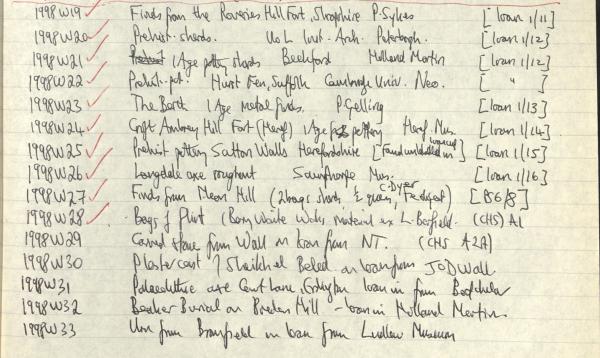 1998W19 Finds from the Roveries Hill Fort, Shropshire P. Sykes [loan 1/11]
1998W20 Prehist. sherds. U o L Inst. Arch. Peterborgh. [loan 1/12]
1998W21 I Age pottery sherds Beckford Holland Martin [loan 1/12]
1998W22 Prehist. pot. Hurst Fen, Suffolk Cambridge Univ. Neo. [ " ]
1998W23 The Berth I Age metal finds. P. Gelling [loan 1/13]
1998W24 Croft Ambrey Hill Fort (Heref) I Age pottery Heref. Mus. [loan 1/14]
1998W25 Prehist pottery Sutton Walls Herefordshire [Found unlabelled in] [loan 1/15]
1998W26 Langdale axe roughout Scunthorpe Mus. [loan 1/16]
1998W27 Finds from Meon Hill (2 bags sherds, ½ quern, C. Dyer) [B6/8]
1998W28 Bags of flint ( material ex L. Barfield. (CHS) A1
1998W29 Carved stone from Wall on loan from NT. (CHS A2A)
1998W30 Plaster cast of Sheikh el Beled on loan from JOD Wall
1998W31 Palaeolithic axe Court Lane, Erdington loan in from
1998W32 Beaker Burial on Bredon Hill - loan in Holland Martin.
1998W33 Urn from Bromfield on loan from Ludlow Museum